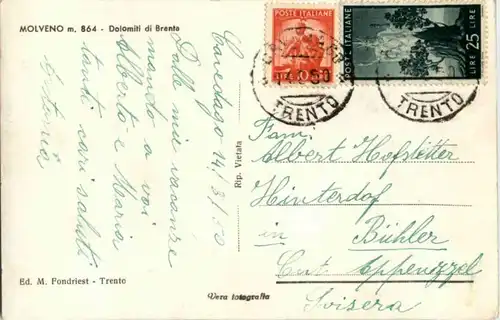 MOLVENO m. 864 - Dolomiti di Brenta
Cavedago 14/3/50
Dalle mie vacanze
mando a voi
Alberto e Maria
tanti cari saluti
Rip. Vietata
Ed. M. Fondriest - Trento
Vera fotografia
POSTE ITALIANE
POSTE ITALIANE
LIRE 25 LIRE
TRENTO
TRENTO
Fam.
Albert Hofstetter
Hinterdorf
in Bühler
Cnt Appenzzel
Svisera